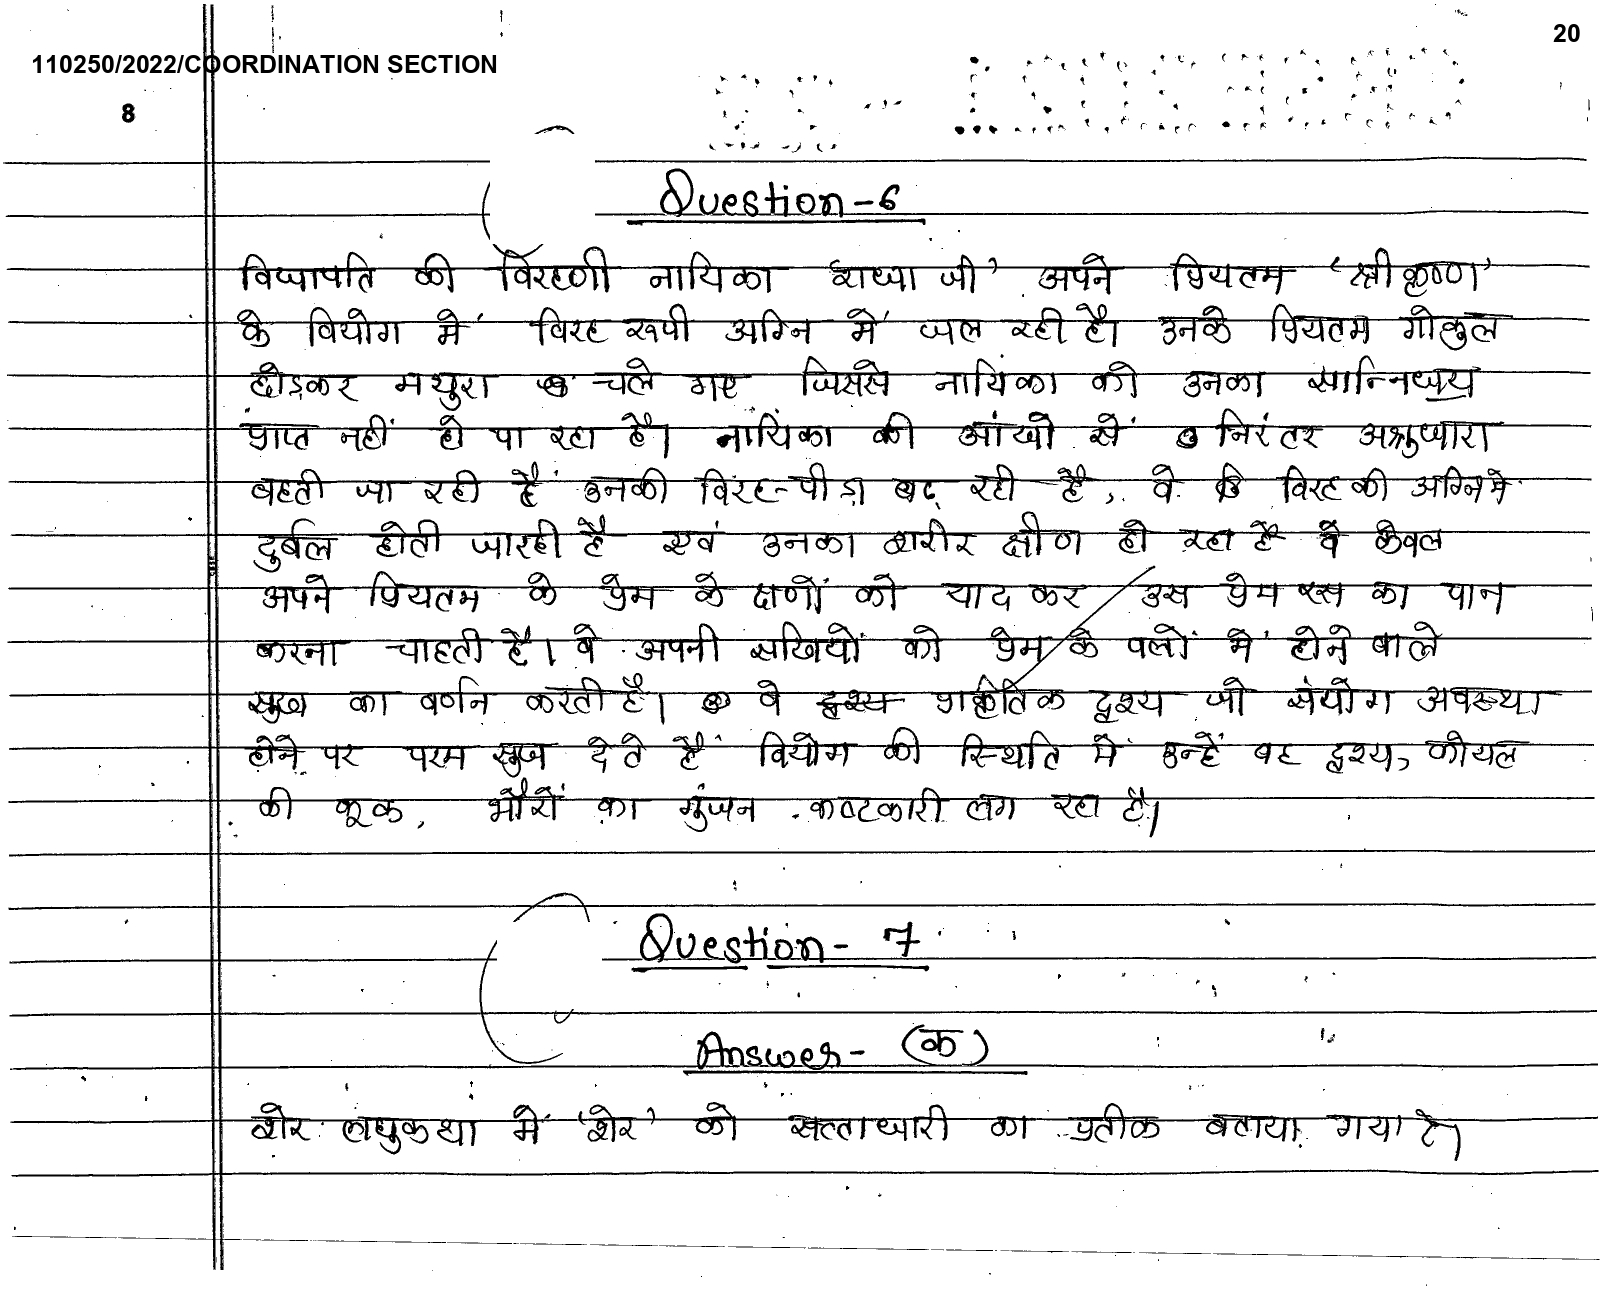 20
110250/2022/COORDINATION SECTION
8
Question-6
विद्यापति की विरहणी नायिका 'राधा जी' अपने प्रियतम 'श्रीकृष्ण'
के वियोग में विरह रूपी अग्नि में जल रही है। उनके प्रियतम गोकुल
छोड़कर मथुरा चले गए जिससे नायिका को उनका सान्निध्य
प्राप्त नहीं हो पा रहा है। नायिका की आंखों सें निरंतर अश्रुधारा
बहती जा रही हैं उनकी विरह-पीड़ा बढ़ रही है, वे विरह की अग्नि में
दुर्बल होती जा रही है एवं उनका शरीर क्षीण हो रहा है वे केवल
अपने प्रियतम के प्रेम के क्षणों को याद कर उस प्रेम रस का पान
करना चाहती है। वे अपनी सखियों को प्रेम के पलों में होने वाले
सुख का वर्णन करती है। वे दृश्य प्राकृतिक दृश्य जो संयोग अवस्था
होने पर परम सुख देते हैं वियोग की स्थिति में उन्हें वह दृश्य, कोयल
की कूक, भौरों का गुंजन कष्टकारी लग रहा है।
Question- 7
Answer- (क)
शेर लघुकथा में 'शेर' को सत्ताधारी का प्रतीक बताया गया है।